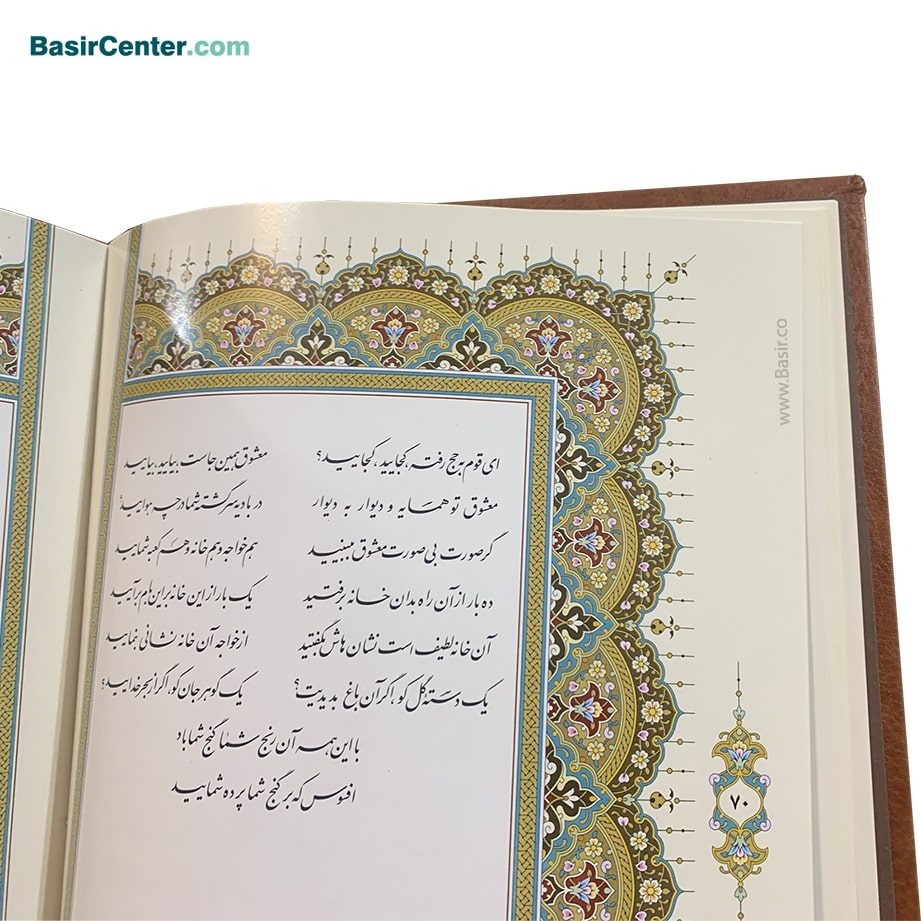 BasirCenter.com
www.Basir.co
ای قوم به حج رفته، کجایید، کجایید؟ معشوق همین جاست، بیایید، بیایید
معشوق تو همسایه و دیوار به دیوار در بادیه سرگشته شما در چه هوایید؟
گر صورت بی صورت معشوق ببینید هم خواجه و هم خانه و هم کعبه شمایید
ده بار از آن راه بدان خانه برفتید یک بار از این خانه بر این بام برآیید
آن خانه لطیف است نشان هاش بگفتید از خواجه آن خانه نشانی بنمایید
یک دستهٔ گل کو، اگر آن باغ بدیدیت؟ یک گوهر جان کو، اگر از بحر خدایید؟
با این همه آن رنج شما گنج شما باد
افسوس که بر گنج شما پرده شمایید
۷۰